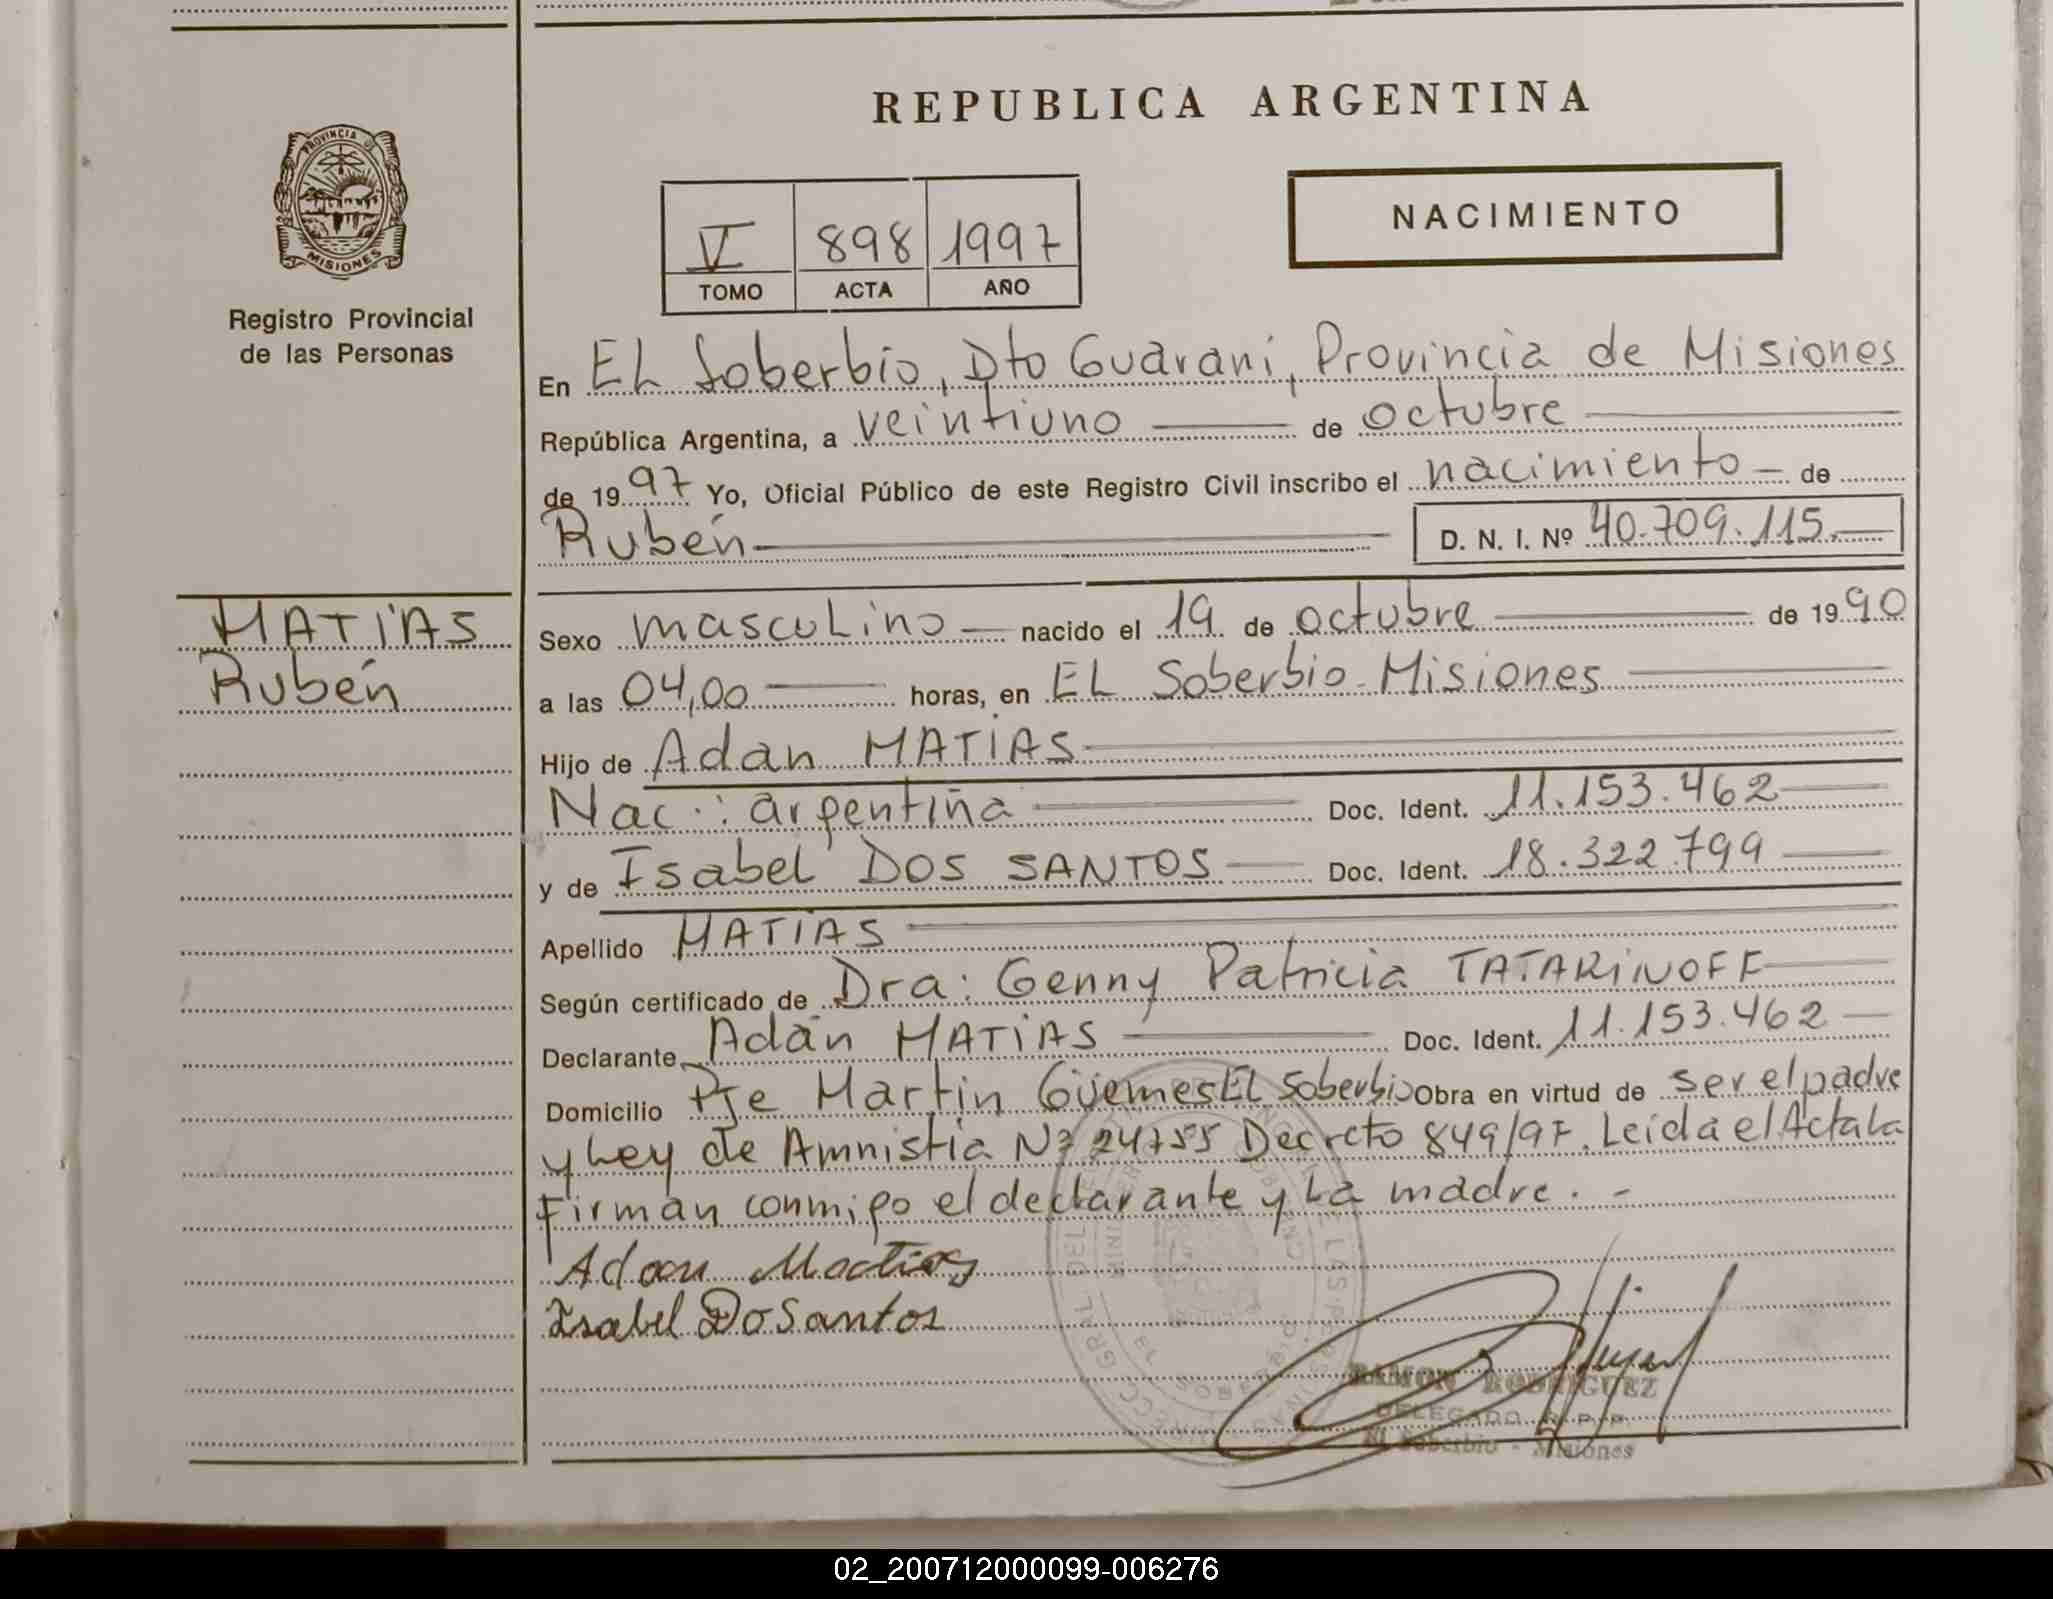 REPUBLICA ARGENTINA
PROVINCIA DE
MISIONES
Registro Provincial
de las Personas
V 898 1997
TOMO ACTA AÑO
NACIMIENTO
En EL Soberbio, Dto Guaraní, Provincia de Misiones
República Argentina, a veintiuno de octubre
de 1997 Yo, Oficial Público de este Registro Civil inscribo el nacimiento de
Rubén D. N. I. Nº 40.709.115.
MATÍAS
Rubén
Sexo masculino nacido el 19 de octubre de 1990
a las 04,00 horas, en EL Soberbio-Misiones
Hijo de Adan MATÍAS
Nac.: argentina Doc. Ident. 11.153.462
y de Isabel DOS SANTOS Doc. Ident. 18.322.799
Apellido MATÍAS
Según certificado de Dra: Genny Patricia TATARINOFF
Declarante Adán MATÍAS Doc. Ident. 11.153.462
Domicilio Pje Martin Güemes EL Soberbio Obra en virtud de ser el padre
y Ley de Amnistía Nº 24755 Decreto 849/97. Leída el Acta la
Firman conmigo el declarante y la madre. -
Adan Matias
Isabel Do Santos
RAMON RODRIGUEZ
DELEGADO R. P. P.
El Soberbio - Misiones
02_200712000099-006276